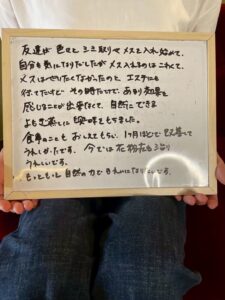 友達が 色々と シミ取りや メスを入れ始めて、
自分も気になりだしたが メス入れるのは こわくて、
メスはぜったいしたくなかったのと エステにも
行ってたけど その時だけで、あまり効果を
感じることが出来なくて、自然にできる
よもぎ蒸しに 興味をもちました。
食事のことも おしえてもらい、1ヶ月ほどで
うれしかったです。 今では 花粉症も
うれしいです。
もっともっと 自然の力で きれいになりたいです。